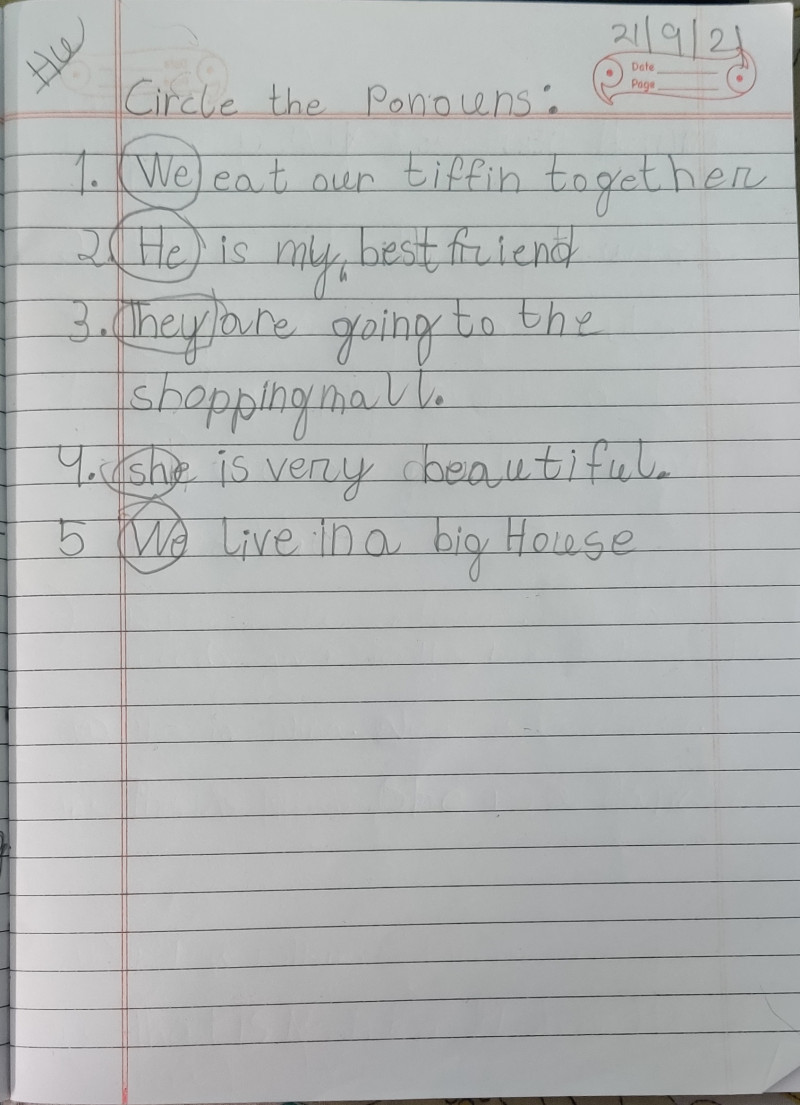 Hw
21/9/21
Date
Page
Circle the Ponouns:
1. We eat our tiffin together
2. He is my best friend
3. They are going to the
shopping mall.
4. she is very beautiful.
5 We live in a big House